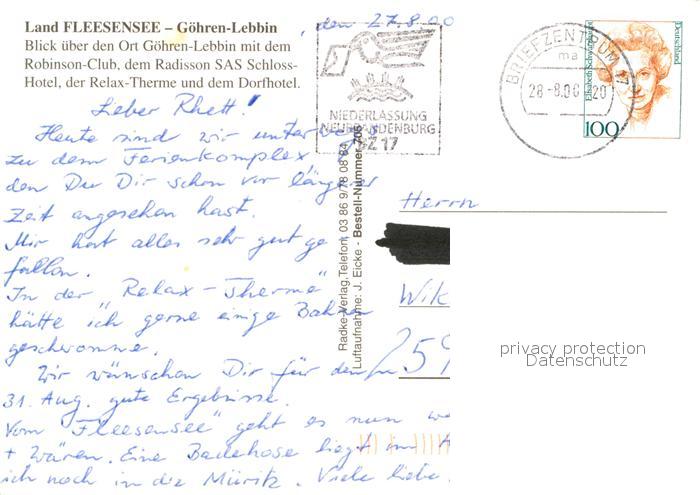 Land FLEESENSEE – Göhren-Lebbin
Blick über den Ort Göhren-Lebbin mit dem
Robinson-Club, dem Radisson SAS Schloss-
Hotel, der Relax-Therme und dem Dorfhotel.
, den 27.8.00
Lieber Rhett!
Heute sind wir unterwegs
zu dem Ferienkomplex
den Du Dir schon vor längerer
Zeit angesehen hast.
Mir hat alles sehr gut ge-
fallen.
In der "Relax-Therme"
hätte ich gerne einige Bahnen
geschwomme.
Wir wünschen Dir für den
31. Aug. gute Ergebnisse.
Vom "Fleesensee" geht es nun
+ Wären. Eine Badehose liegt im
ich noch in die Müritz. Viele liebe
Radke-Verlag, Telefon 03 86 9/78 08 84
Luftaufnahme: J. Eicke - Bestell-Nummer 706
NIEDERLASSUNG
NEUBRANDENBURG
BZ 17
BRIEFZENTRUM 17
ma
28-8.00-20
Deutschland
Elisabeth Schwarzhaupt
100
Herrn
Wik
259
privacy protection
Datenschutz